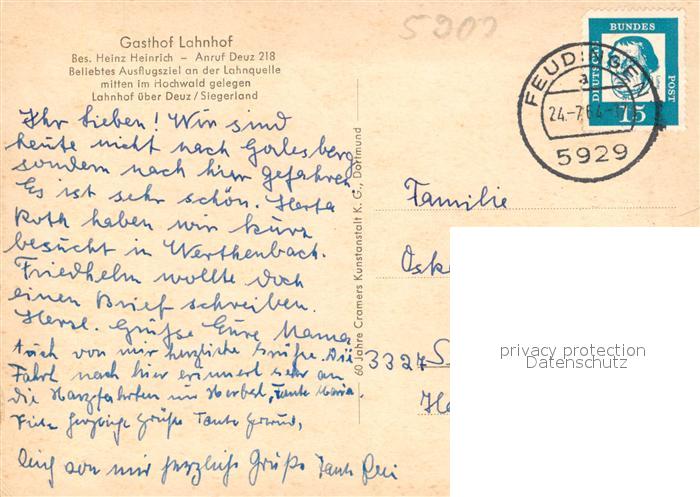 5909
Gasthof Lahnhof
Bes. Heinz Heinrich – Anruf Deuz 218
Beliebtes Ausflugsziel an der Lahnquelle
mitten im Hochwald gelegen
Lahnhof über Deuz / Siegerland
BUNDES
DEUTSCHE
POST
15
FEUDINGE
a
24.-7.64.-17
5929
Ihr Lieben! Wir sind
heute nicht nach Godesberg
sondern nach hier gefahren.
Es ist sehr schön. Herta
Roth haben wir kurz
besucht in Werthenbach.
Friedhelm wollte doch
einen Brief schreiben.
Herzl. Grüße Eure Mama
Auch von mir herzliche Grüße. Die
Fahrt nach hier erinnert sehr an
die Harzfahrten im Herbst, Tante Maria.
herzige Grüße Tante
Auch von mir herzliche Grüße Tante
60 Jahre Cramers Kunstanstalt K. G., Dortmund
Familie
Oske
3327 S
Ha
privacy protection
Datenschutz